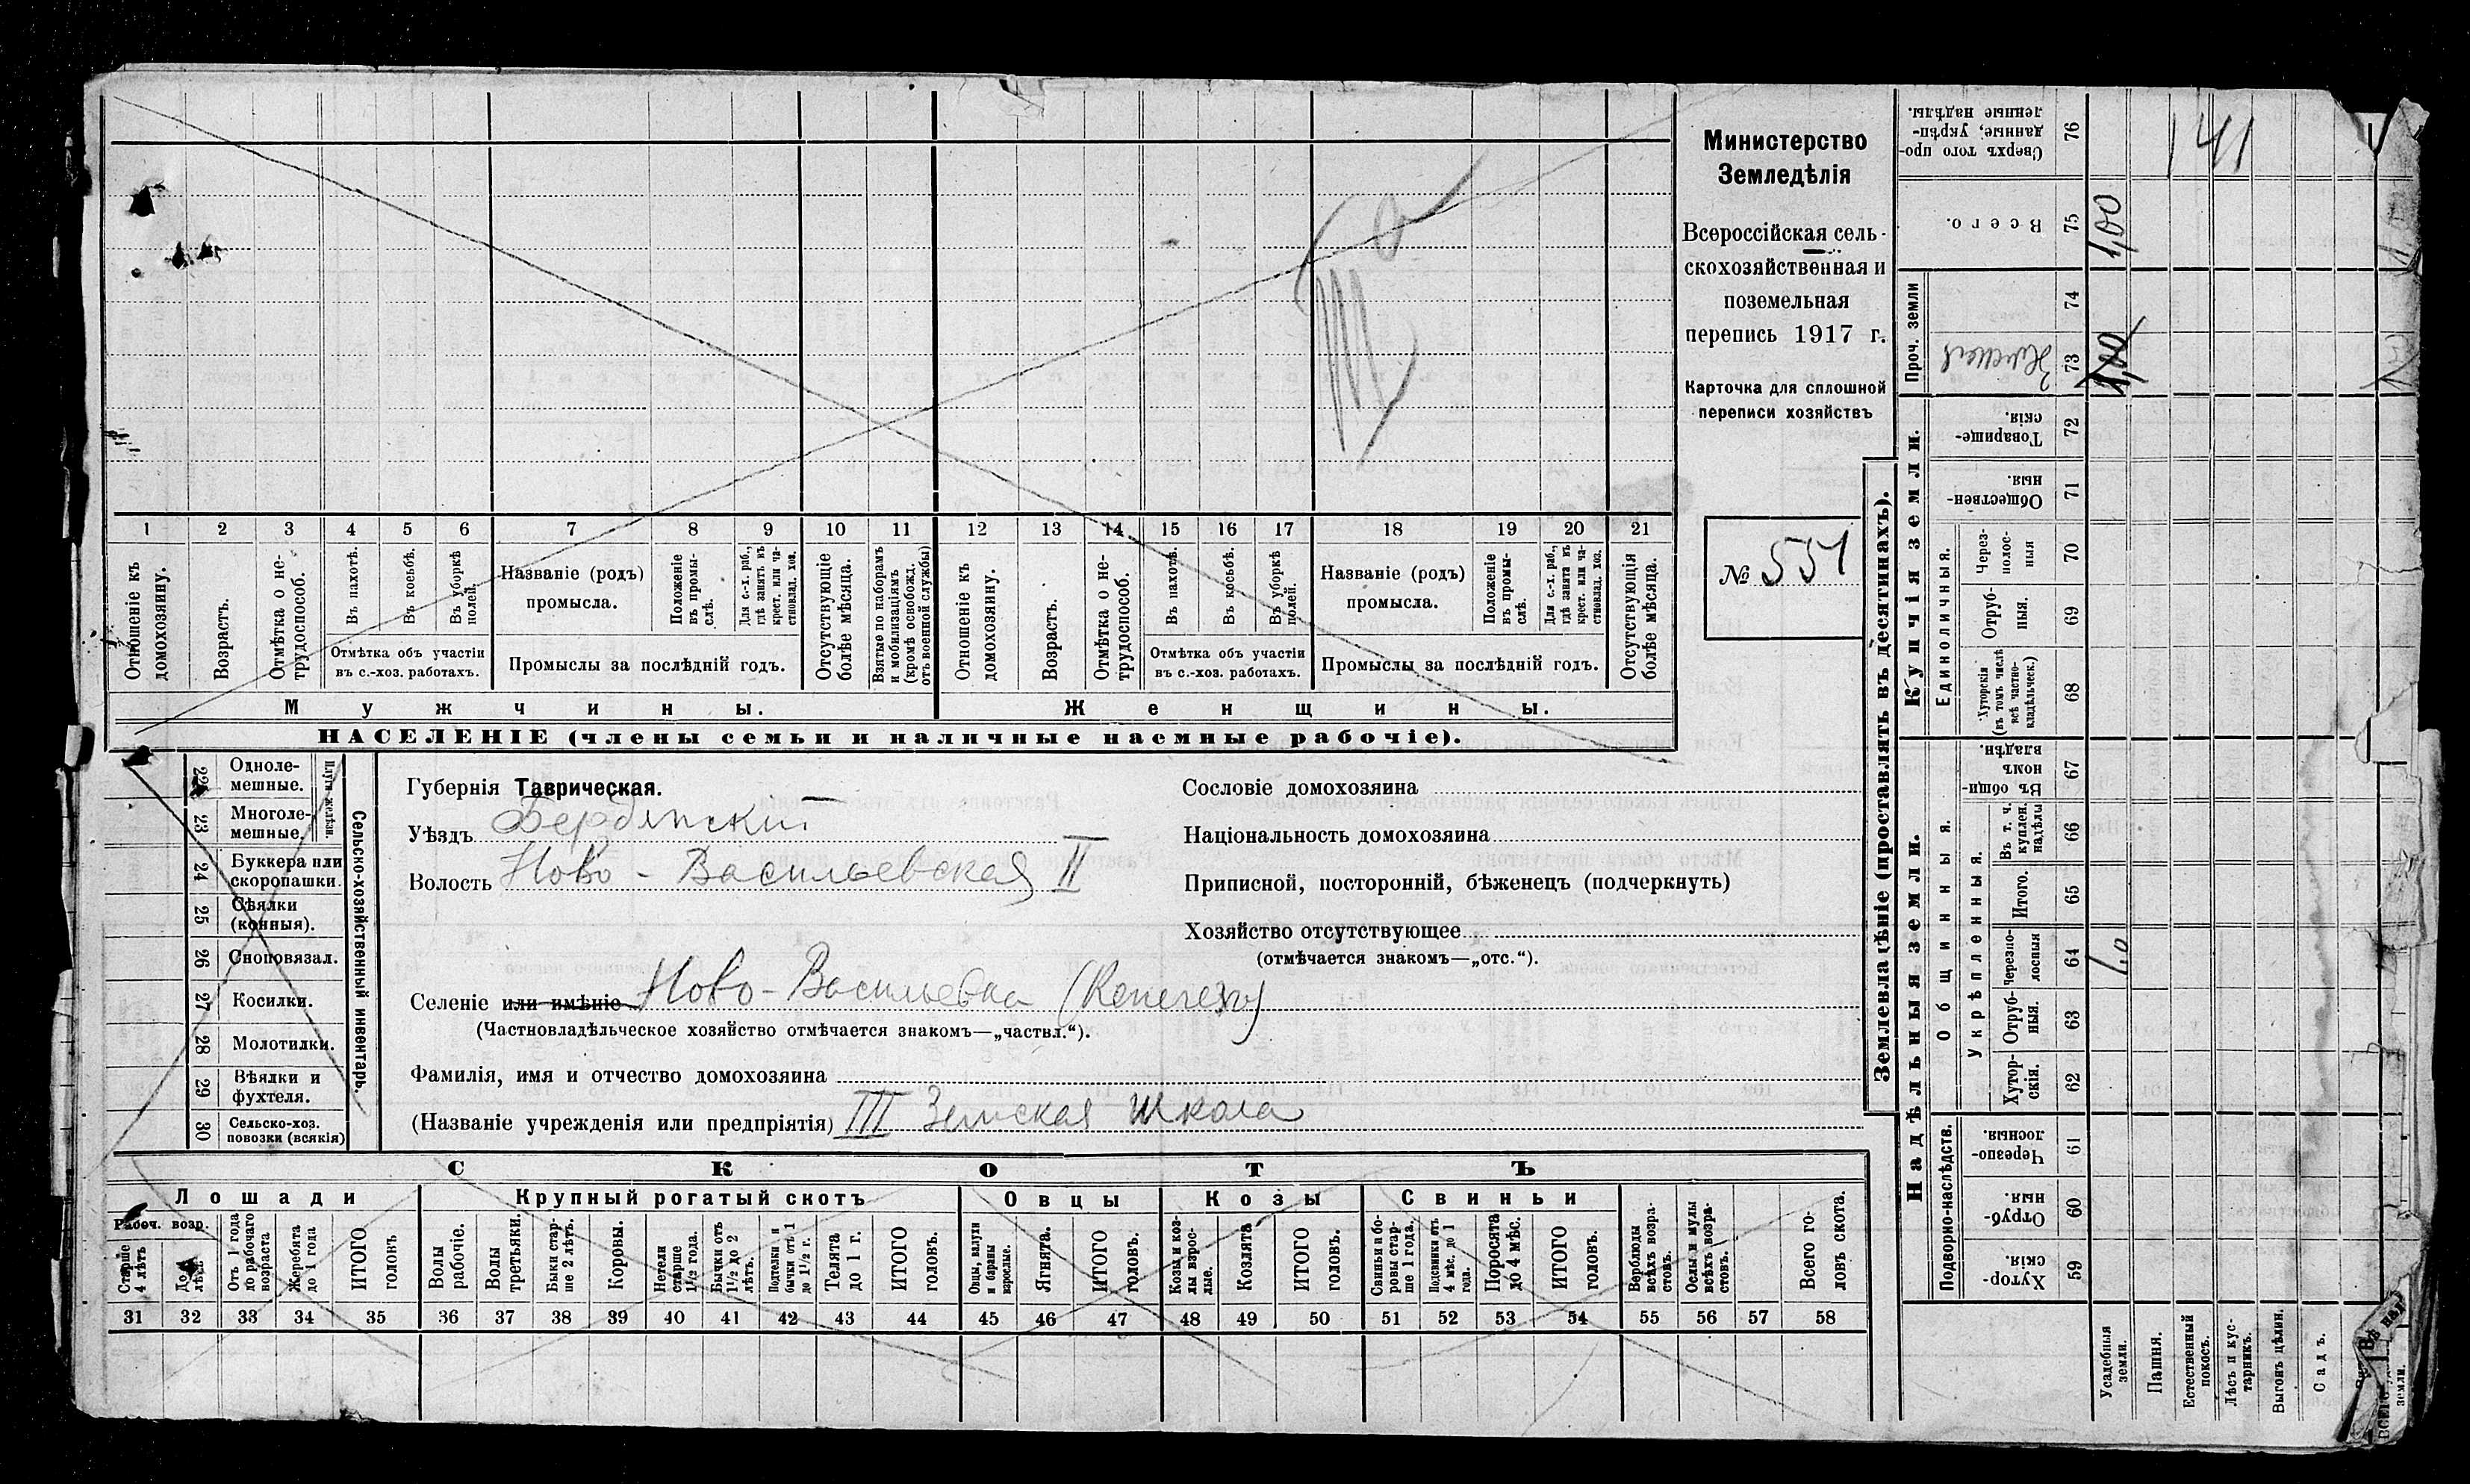 1 2 3 4 5 6 7 8 9 10 11 12 13 14 15 16 17 18 19 20 21
Отношеніе къ домохозяину.
Возрастъ.
Отмѣтка о не-
трудоспособ.
Въ пахотѣ.
Въ косьбѣ.
Въ уборкѣ
полей.
Названіе (родъ)
промысла.
Положеніе
въ промы-
слѣ.
Для с.-х. раб.,
гдѣ занятъ въ
крест. или ча-
стновлад. хоз.
Отсутствующіе
болѣе мѣсяца.
Взятые по наборамъ
и мобилизаціямъ
(кромѣ освобожд.
отъ военной службы)
Отношеніе къ
домохозяину.
Возрастъ.
Отмѣтка о не-
трудоспособ.
Въ пахотѣ.
Въ косьбѣ.
Въ уборкѣ
полей.
Названіе (родъ)
промысла.
Положеніе
въ промы-
слѣ.
Для с.-х. раб.,
гдѣ занята въ
крест. или ча-
стновлад. хоз.
Отсутствующія
болѣе мѣсяца.
Отмѣтка объ участіи
въ с.-хоз. работахъ.
Промыслы за послѣдній годъ.
Отмѣтка объ участіи
въ с.-хоз. работахъ.
Промыслы за послѣдній годъ.
Мужчины.
Женщины.
НАСЕЛЕНІЕ (члены семьи и наличные наемные рабочіе).
Министерство
Земледѣлія
Всероссійская сель-
скохозяйственная и
поземельная
перепись 1917 г.
Карточка для сплошной
переписи хозяйствъ
№ 551
22 Одноле-
мешные.
23 Многоле-
мешные.
Плуги желѣзн.
24 Буккера или
скоропашки.
25 Сѣялки
(конныя).
26 Сноповязал.
27 Косилки.
28 Молотилки.
29 Вѣялки и
фухтеля.
30 Сельско-хоз.
повозки (всякія)
Сельско-хозяйственный инвентарь.
Губернія Таврическая.
Уѣздъ Бердянскій
Волость Ново-Васильевская II
Селеніе или имѣніе Ново-Васильевка
(Частновладѣльческое хозяйство отмѣчается знакомъ—„частвл.“).
Фамилія, имя и отчество домохозяина
(Названіе учрежденія или предпріятія) III Земская Школа
Сословіе домохозяина
Національность домохозяина
Приписной, посторонній, бѣженецъ (подчеркнуть)
Хозяйство отсутствующее
(отмѣчается знакомъ—„отс.“).
СКОТЪ
Лошади
Крупный рогатый скотъ
Овцы
Козы
Свиньи
Рабоч. возр.
Старше
4 лѣтъ
До 4
лѣтъ
Отъ 1 года
до рабочаго
возраста
Жеребята
до 1 года
ИТОГО
головъ
Волы
рабочіе.
Волы
третьяки.
Быки стар-
ше 2 лѣтъ.
Коровы.
Нетели
старше
1½ года.
Бычки отъ
1½ до 2
лѣтъ.
Подтелки и
бычки отъ 1
до 1½ г.
Телята
до 1 г.
ИТОГО
головъ.
Овцы, валухи
и бараны
взрослые.
Ягнята.
ИТОГО
головъ.
Козы и коз-
лы взрос-
лые.
Козлята
ИТОГО
головъ.
Свиньи и бо-
ровы стар-
ше 1 года.
Подсвинки отъ
4 мѣс. до 1
года.
Поросята
до 4 мѣс.
ИТОГО
головъ.
Верблюды
всѣхъ возра-
стовъ.
Ослы и мулы
всѣхъ возра-
стовъ.
Всего го-
ловъ скота.
31 32 33 34 35 36 37 38 39 40 41 42 43 44 45 46 47 48 49 50 51 52 53 54 55 56 57 58
Землевладѣніе (проставлять въ десятинахъ).
Надѣльныя земли.
Купчія земли.
Проч. земли
Подворно-наслѣдств.
Общинныя.
Укрѣпленныя.
Единоличныя.
Сверхъ того про-
данные, укрѣп-
ленные надѣлы.
76
141
Всего.
75
1,00
74
Земская
73
1,00
Товарище-
скія.
72
Обществен-
ныя.
71
Через-
полос-
ныя
70
Отруб-
ныя.
69
Хуторскія
(въ томъ числѣ
всѣ частно-
владѣльческ.)
68
Въ общи-
номъ
владѣн.
67
Въ т. ч.
куплен.
надѣлы
66
Итого.
65
Черезпо-
лосныя
64
1,0
Отруб-
ныя.
63
Хутор-
скія.
62
Черезпо-
лосныя.
61
Отруб-
ныя.
60
Хутор-
скія.
59
Усадебныя
земли.
Пашня.
Естественный
покосъ.
Лѣсъ и кус-
тарникъ.
Выгонъ цѣлин.
Садъ.
земли.